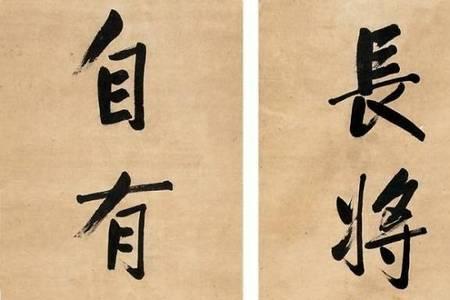 長將
自有